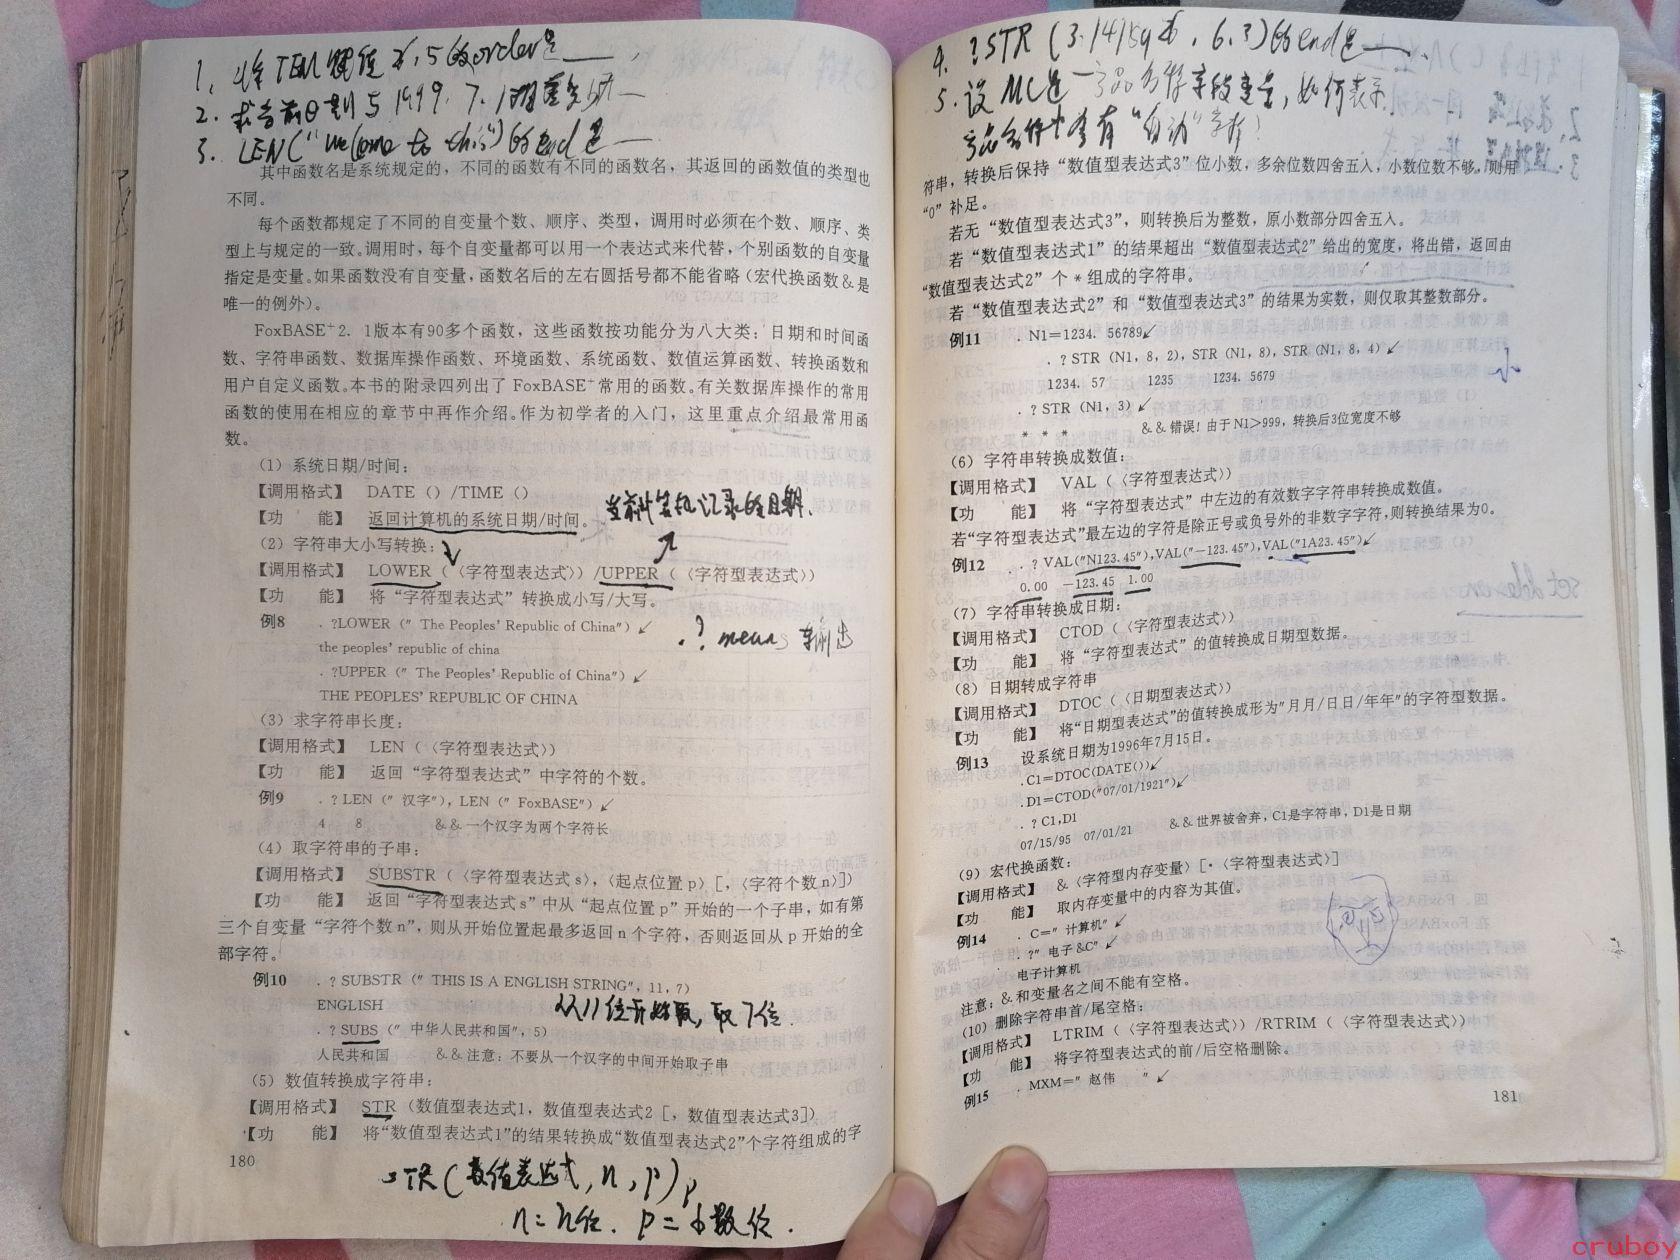 2. 求当前日期与1999.7.1
3. LEN("welcome to this")的end是
其中函数名是系统规定的，不同的函数有不同的函数名，其返回的函数值的类型也
不同。
每个函数都规定了不同的自变量个数、顺序、类型，调用时必须在个数、顺序、类
型上与规定的一致。调用时，每个自变量都可以用一个表达式来代替，个别函数的自变量
指定是变量。如果函数没有自变量，函数名后的左右圆括号都不能省略（宏代换函数&是
唯一的例外）。
FoxBASE⁺2.1版本有90多个函数，这些函数按功能分为八大类：日期和时间函
数、字符串函数、数据库操作函数、环境函数、系统函数、数值运算函数、转换函数和
用户自定义函数。本书的附录四列出了 FoxBASE⁺常用的函数。有关数据库操作的常用
函数的使用在相应的章节中再作介绍。作为初学者的入门，这里重点介绍最常用函
数。
（1）系统日期/时间：
【调用格式】 DATE（）/TIME（）
【功　　能】 返回计算机的系统日期/时间。
当前计算机记录的日期.
（2）字符串大小写转换：
【调用格式】 LOWER（〈字符型表达式〉）/UPPER（〈字符型表达式〉）
【功　　能】 将“字符型表达式”转换成小写/大写。
例8 .?LOWER（" The Peoples' Republic of China"）↙
.? means 输出
the peoples' republic of china
.?UPPER（" The Peoples' Republic of China"）↙
THE PEOPLES' REPUBLIC OF CHINA
（3）求字符串长度：
【调用格式】 LEN（〈字符型表达式〉）
【功　　能】 返回“字符型表达式”中字符的个数。
例9 .？LEN（" 汉字"），LEN（" FoxBASE"）↙
4 8 &&一个汉字为两个字符长
（4）取字符串的子串：
【调用格式】 SUBSTR（〈字符型表达式s〉，〈起点位置p〉［，〈字符个数n〉］）
【功　　能】 返回“字符型表达式s”中从“起点位置p”开始的一个子串，如有第
三个自变量“字符个数n”，则从开始位置起最多返回n个字符，否则返回从p开始的全
部字符。
例10 .？SUBSTR（" THIS IS A ENGLISH STRING"，11，7）
ENGLISH
从11位开始取，取7位.
.？SUBS（" 中华人民共和国"，5）
人民共和国 &&注意：不要从一个汉字的中间开始取子串
（5）数值转换成字符串：
【调用格式】 STR（数值型表达式1，数值型表达式2［，数值型表达式3］）
【功　　能】 将“数值型表达式1”的结果转换成“数值型表达式2”个字符组成的字
180
STR(数值表达式, n, p)
n=n位. p=小数位.
4. ?STR(3.14159, 6.3)的end是
5. 设MC是一产品名称字段变量，如何表示
产品名称中含有“自动”字样！
符串，转换后保持“数值型表达式3”位小数，多余位数四舍五入，小数位数不够，则用
“0”补足。
若无“数值型表达式3”，则转换后为整数，原小数部分四舍五入。
若“数值型表达式1”的结果超出“数值型表达式2”给出的宽度，将出错，返回由
“数值型表达式2”个*组成的字符串。
若“数值型表达式2”和“数值型表达式3”的结果为实数，则仅取其整数部分。
例11 .N1=1234.56789↙
.？STR（N1，8，2），STR（N1，8），STR（N1，8，4）↙
1234.57 1235 1234.5679
小
.？STR（N1，3）↙
* * * &&错误！由于N1>999，转换后3位宽度不够
（6）字符串转换成数值：
【调用格式】 VAL（〈字符型表达式〉）
【功　　能】 将“字符型表达式”中左边的有效数字字符串转换成数值。
若“字符型表达式”最左边的字符是除正号或负号外的非数字字符，则转换结果为0。
例12 .？VAL("N123.45")，VAL("-123.45")，VAL("1A23.45")↙
0.00 -123.45 1.00
（7）字符串转换成日期：
【调用格式】 CTOD（〈字符型表达式〉）
【功　　能】 将“字符型表达式”的值转换成日期型数据。
（8）日期转成字符串
【调用格式】 DTOC（〈日期型表达式〉）
【功　　能】 将“日期型表达式”的值转换成形为"月月/日日/年年"的字符型数据。
例13 设系统日期为1996年7月15日。
.C1=DTOC(DATE())↙
.D1=CTOD("07/01/1921")↙
.？C1,D1
07/15/95 07/01/21 &&世界被舍弃，C1是字符串，D1是日期
（9）宏代换函数：
【调用格式】 &〈字符型内存变量〉［·〈字符型表达式〉］
【功　　能】 取内存变量中的内容为其值。
例14 .C=" 计算机"↙
.?" 电子&C"↙
电子计算机
注意：&和变量名之间不能有空格。
（10）删除字符串首/尾空格：
【调用格式】 LTRIM（〈字符型表达式〉）/RTRIM（〈字符型表达式〉）
【功　　能】 将字符型表达式的前/后空格删除。
例15 .MXM=" 赵伟　　"↙
181
cruboy